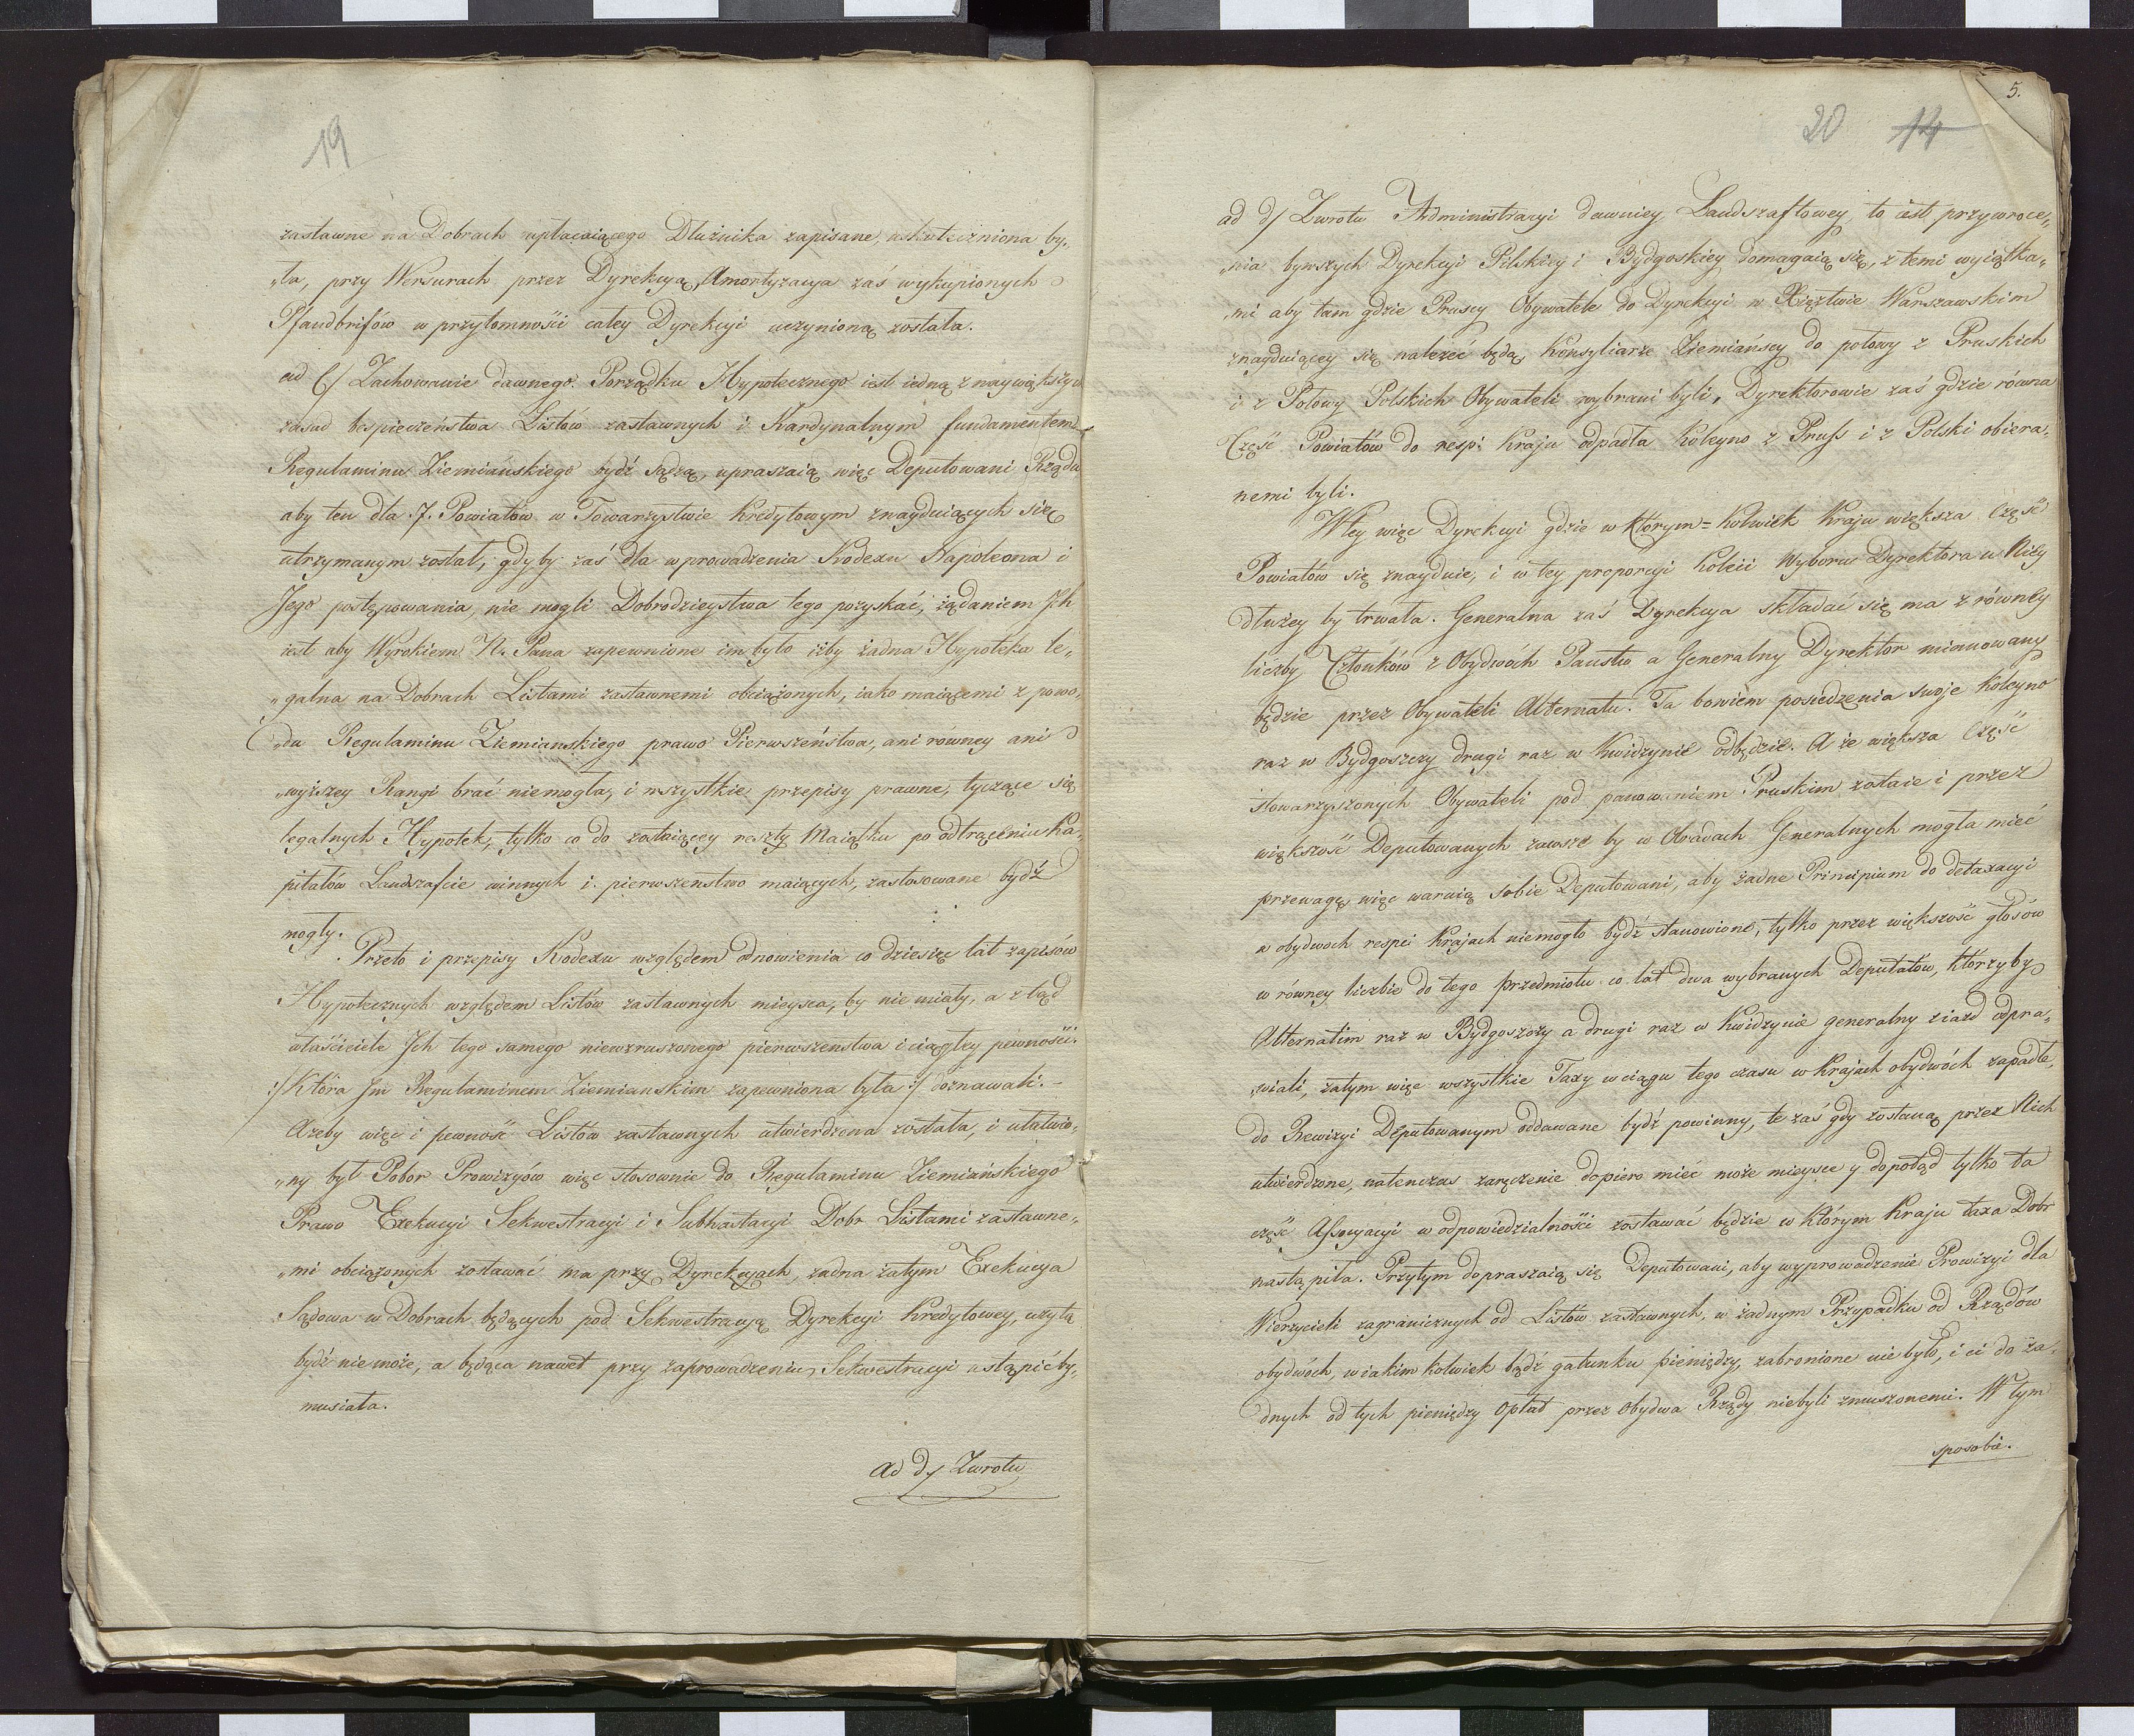 19
zastawne na Dobrach wpłacaiącego Dłużnika zapisane, uskuteczniona by„
„ła, przy Wersurach przez Dyrekcyą, Amortyzacya zaś wykupionych
Pfandbrifów w przytomności całey Dyrekcyi uczynioną została.
ad C/ Zachowanie dawnego Porządku Hypotecznego iest iedną z naywiększych
zasad bespieczeństwa Listów zastawnych i Kardynalnym fundamentem
Regulaminu Ziemiańskiego bydź sądzą, upraszaią więc Deputowani Rządu
aby ten dla 7. Powiatów w Towarzystwie Kredytowym znayduiących się
utrzymanym został, gdyby zaś dla wprowadzenia Kodexu Napoleona i
Jego postępowania, nie mogli Dobrodzieystwa tego pozyskać, żądaniem Jch
iest aby Wyrokiem N. Pana zapewnione im było iżby żadna Hypoteka le„
„galna na Dobrach Listami zastawnemi obciążonych, iako maiącemi z powo„
„du Regulaminu Ziemianskiego prawo Pierwszeństwa, ani równey ani
„wyższey Rangi brać niemogła, i wszystkie przepisy prawne, tyczące się
legalnych Hypotek, tylko co do zostaiącey reszty Maiątku po odtrąceniu Ka„
pitałów Landszafcie winnych i pierwszenstwo maiących, zastosowane bydź
mogły.
Przeto i przepisy Kodexu względem odnowienia co dziesięć lat zapisów
Hypotecznych względem Listów zastawnych mieysca, by nie miały, a ztąd
właściciele Jch tego samego niewzruszonego pierwszenstwa i ciągłey pewności
:/ Która Jm Regulaminem Ziemianskim zapewniona była :/ doznawali. –
Ażeby więc i pewność Listów zastawnych utwierdzona została, i ułatwio„
„ny był Pobor Prowizyów więc stosownie do Regulaminu Ziemiańskiego
Prawo Exekucyi Sekwestracyi i Subhastacyi Dobr Listami zastawne„
„mi obciążonych zostawać ma przy Dyrekcyach, żadna zatym Exekucya
Sądowa w Dobrach będących pod Sekwestracyą Dyrekcyi Kredytowey, użytą
bydź nie może, a będąca nawet przy zaprowadzeniu Sekwestracyi ustąpić by„
musiała.
Ad d/ Zwrotu
5.
20 14
ad d/ Zwrotu Administracyi dawniey Landszaftowey, to iest, przywroce„
„nia bywszych Dyrekcyi Pilskiey i Bydgoskiey domagaią się, z temi wyiątka„
„mi aby tam gdzie Pruscy Obywatele do Dyrekcyi w Xięztwie Warszawskim
znayduiącey się należeć będą, Konsyliarze Ziemiańscy do połowy z Pruskich
i z Połowy Polskich Obywateli wybrani byli, Dyrektorowie zaś gdzie równa
Część Powiatów do resp: Kraju odpadła koleyno z Prufs i z Polski obiera„
nemi byli.
W tey więc Dyrekcyi gdzie w którym=kolwiek Kraju większa Część
Powiatów się znayduie, i w tey proporcyi Koleii Wyboru Dyrektora u Niey
dłużey by trwała. Generalna zaś Dyrekcya składać się ma z równey
liczby Członków z Obydwóch Panstw a Generalny Dyrektor mianowany
będzie przez Obywateli Alternatu. Ta bowiem posiedzenia swoje koleyno
raz w Bydgoszczy drugi raz w Kwidzynie odbędzie. A że większa Część
stowarzyszonych Obywateli pod panowaniem Pruskim zostaie i przez
większość Deputowanych zawsze by w Obradach Generalnych mogła mieć
przewagę, więc waruią sobie Deputowani, aby żadne Principium do detaxacyi
w obydwoch respe: Krajach niemogło bydź stanowione, tylko przez większość głosów
w równey liczbie do tego przedmiotu co lat dwa wybranych Deputatów, którzyby
Alternatim raz w Bydgoszczy a drugi raz w Kwidzynie generalny ziazd odpra„
„wiali, zatym więc wszystkie Taxy w ciągu tego czasu w Krajach obydwóch zapadłe,
do Rewizyi Deputowanym oddawane bydź powinny, te zaś gdy zostaną przez Nich
utwierdzone, natenczas zaręczenie dopiero mieć może mieysce y dopotąd tylko ta
część Afsocyacyi w odpowiedzialności zostawać będzie w którym Kraju taxa Dobr
nastąpiła. Przytym dopraszaią się Deputowani, aby wyprowadzenie Prowizyi dla
Wierzycieli zagranicznych od Listów zastawnych, w żadnym Przypadku od Rządów
obydwóch, w iakim kolwiek bądź gatunku pieniędzy, zabronione nie było, i ci do ża„
dnych od tych pieniędzy Opłat przez Obydwa Rządy niebyli zmuszonemi. W tym
sposobie.